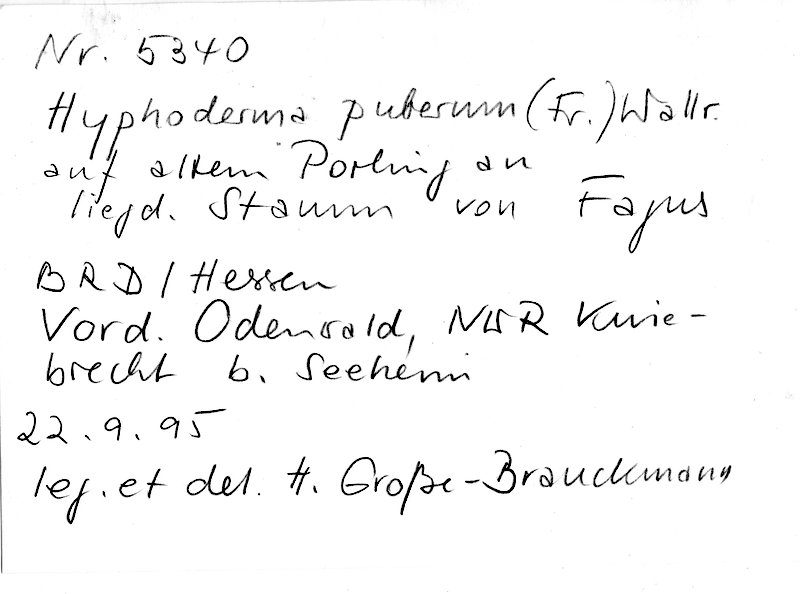 Nr. 5340
Hyphoderma puberum (Fr.) Wallr.
auf altem Porling an
liegd. Stamm von Fagus
BRD / Hessen
Vord. Odenwald, NWR Knie-
brecht b. Seeheim
22.9.95
leg. et det. H. Große-Brauckmann